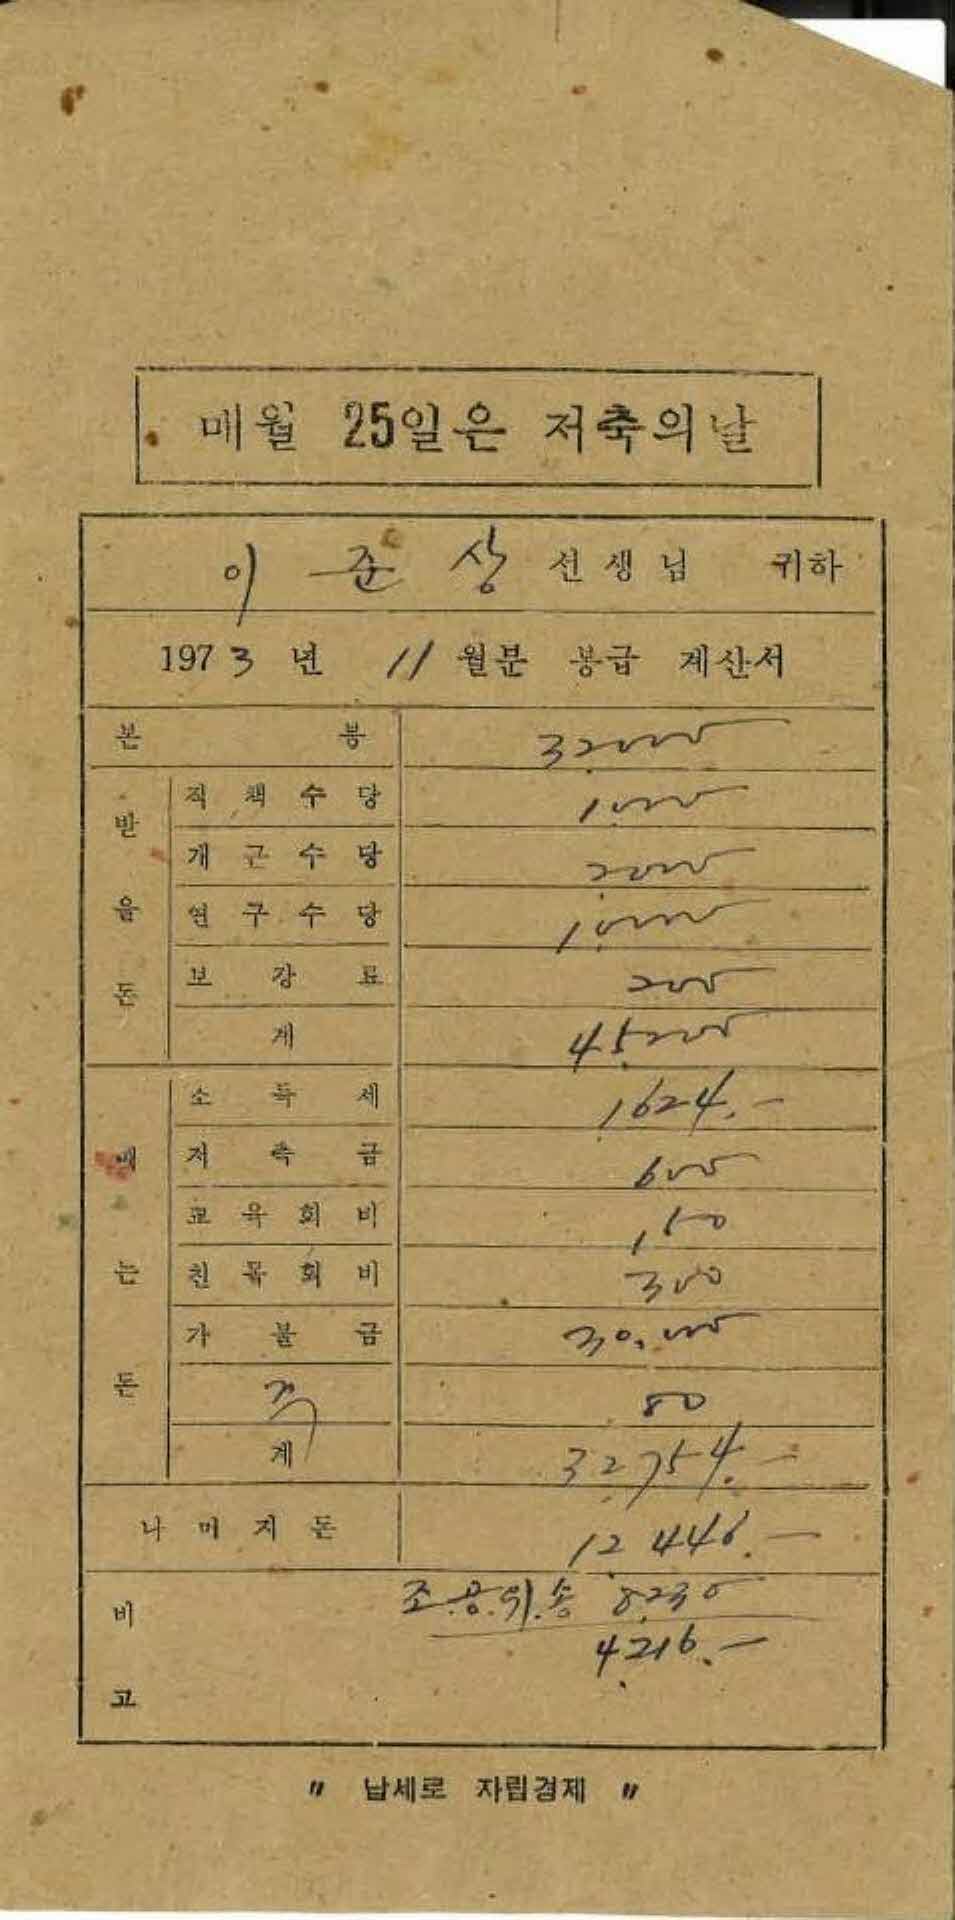 매월 25일은 저축의날
이 준 상 선생님 귀하
1973년 11월분 봉급 계산서
본 봉 32000
받을돈
직책수당 1000
개근수당 2000
연구수당 10000
보강료 200
계 45200
빼는돈
소득세 1624.-
저축금 600
교육회비 150
친목회비 300
가불금 30,000
적 80
계 32754.-
나머지돈 12446.-
비고
조.공.위.송 8230
4216.-
" 납세로 자립경제 "